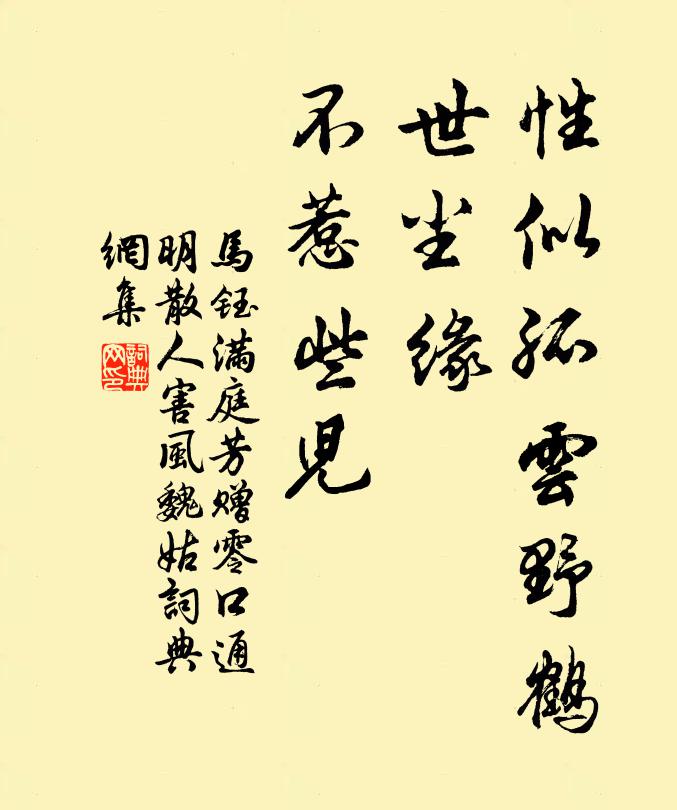 性似孤雲野鶴
世尘緣
不惹些兒
馬鈺满庭芳赠零口通
明散人害風魏姑詞典
網集
詞典
网印